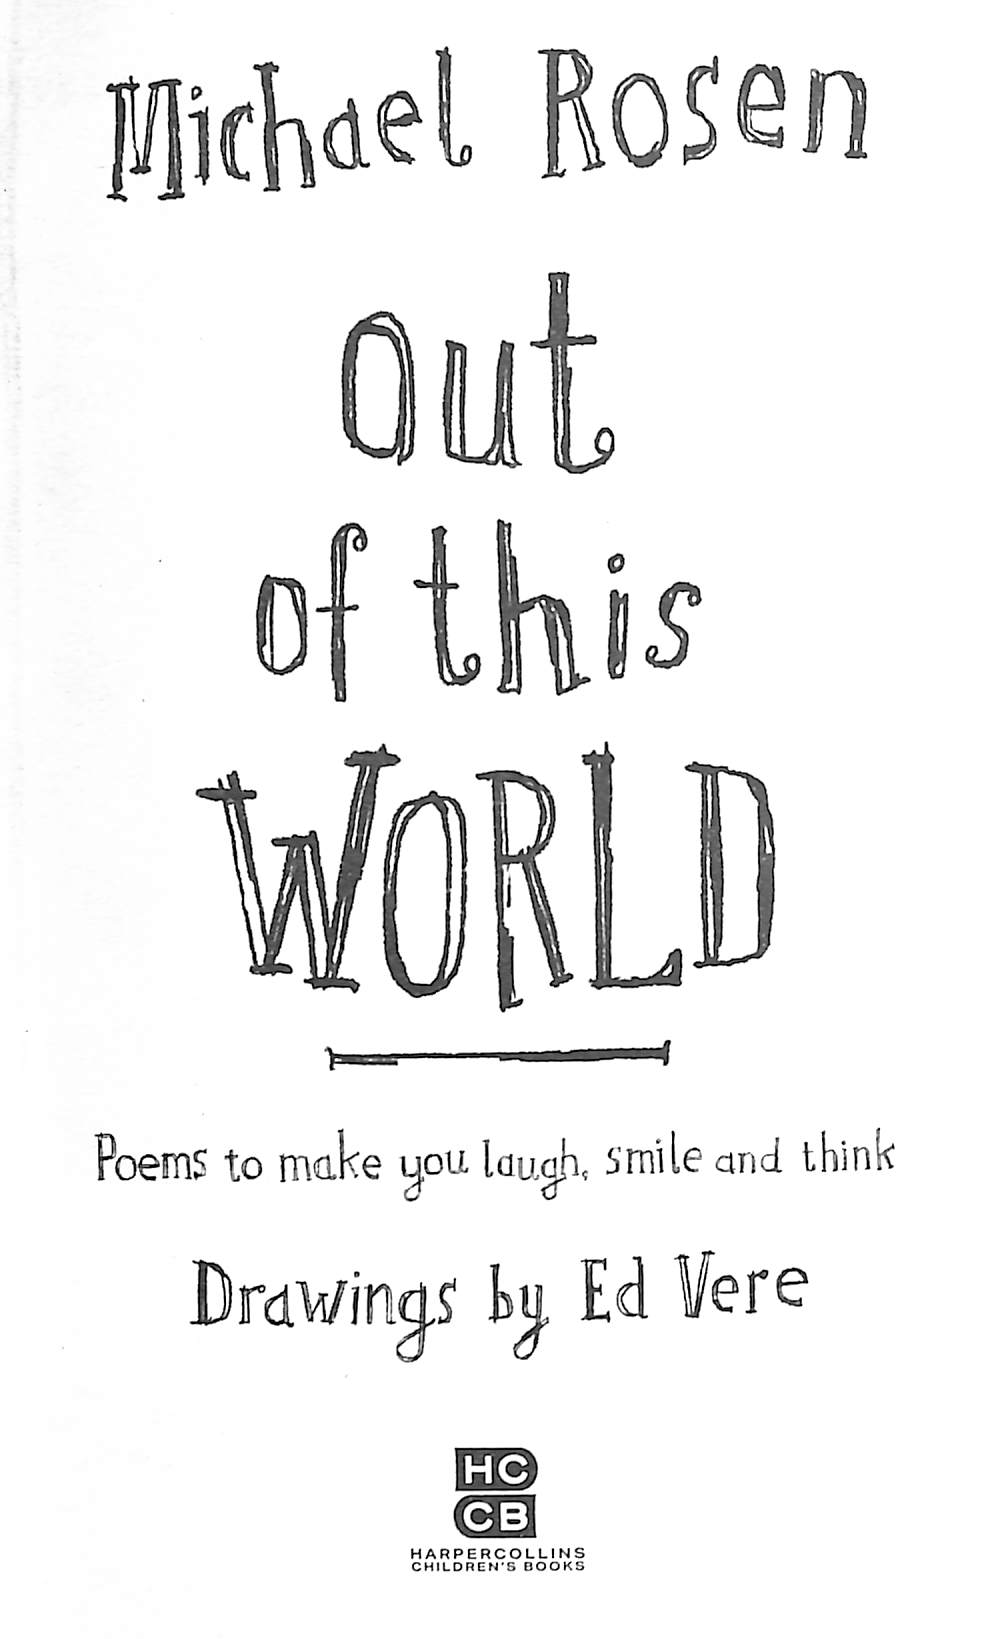 Michael Rosen
out
of this
WORLD
Poems to make you laugh, smile and think
Drawings by Ed Vere
HC
CB
HARPERCOLLINS
CHILDREN'S BOOKS